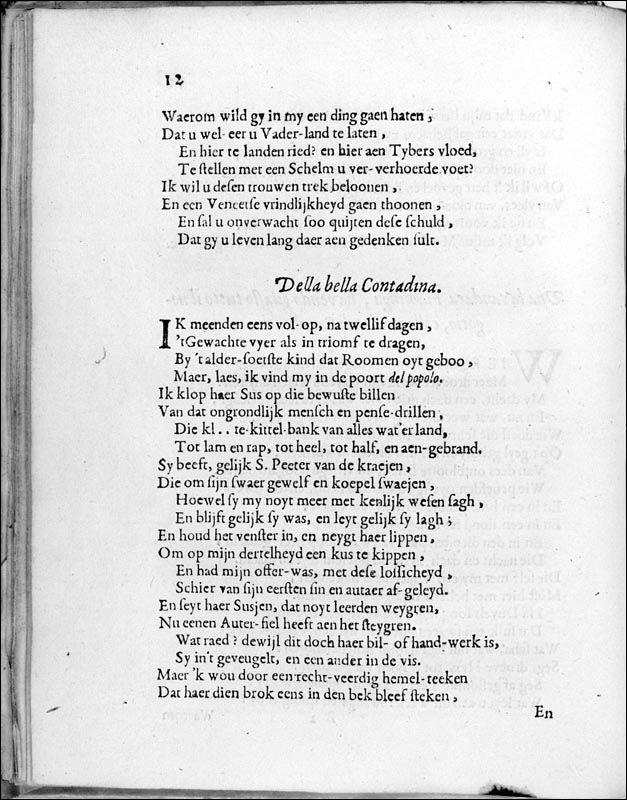 12
Waerom wild gy in my een ding gaen haten,
Dat u wel-eer u Vader-land te laten,
En hier te landen ried? en hier aen Tybers vloed,
Te stellen met een Schelm u ver-verhoerde voet?
Ik wil u desen trouwen trek beloonen,
En een Veneetse vrindlijkheyd gaen thoonen,
En sal u onverwacht soo quijten dese schuld,
Dat gy u leven lang daer aen gedenken sult.
Della bella Contadina.
IK meenden eens vol-op, na twellif dagen,
'tGewachte vyer als in triomf te dragen,
By 't alder-soetste kind dat Roomen oyt geboo,
Maer, laes, ik vind my in de poort del popolo.
Ik klop haer Sus op die bewuste billen
Van dat ongrondlijk mensch en pense-drillen,
Die kl.. te-kittel-bank van alles wat'er land,
Tot lam en rap, tot heel, tot half, en aen-gebrand.
Sy beeft, gelijk S. Peeter van de kraejen,
Die om sijn swaer gewelf en koepel swaejen,
Hoewel sy my noyt meer met kenlijk wesen sagh,
En blijft gelijk sy was, en leyt gelijk sy lagh;
En houd het venster in, en neygt haer lippen,
Om op mijn dertelheyd een kus te kippen,
En had mijn offer-was, met dese lossicheyd,
Schier van sijn eersten sin en autaer af-geleyd.
En seyt haer Susjen, dat noyt leerden weygren,
Nu eenen Auter-siel heeft aen het steygren.
Wat raed? dewijl dit doch haer bil- of hand-werk is,
Sy in't geveugelt, en een ander in de vis.
Maer 'k wou door een recht-veerdig hemel-teeken
Dat haer dien brok eens in den bek bleef steken,
En